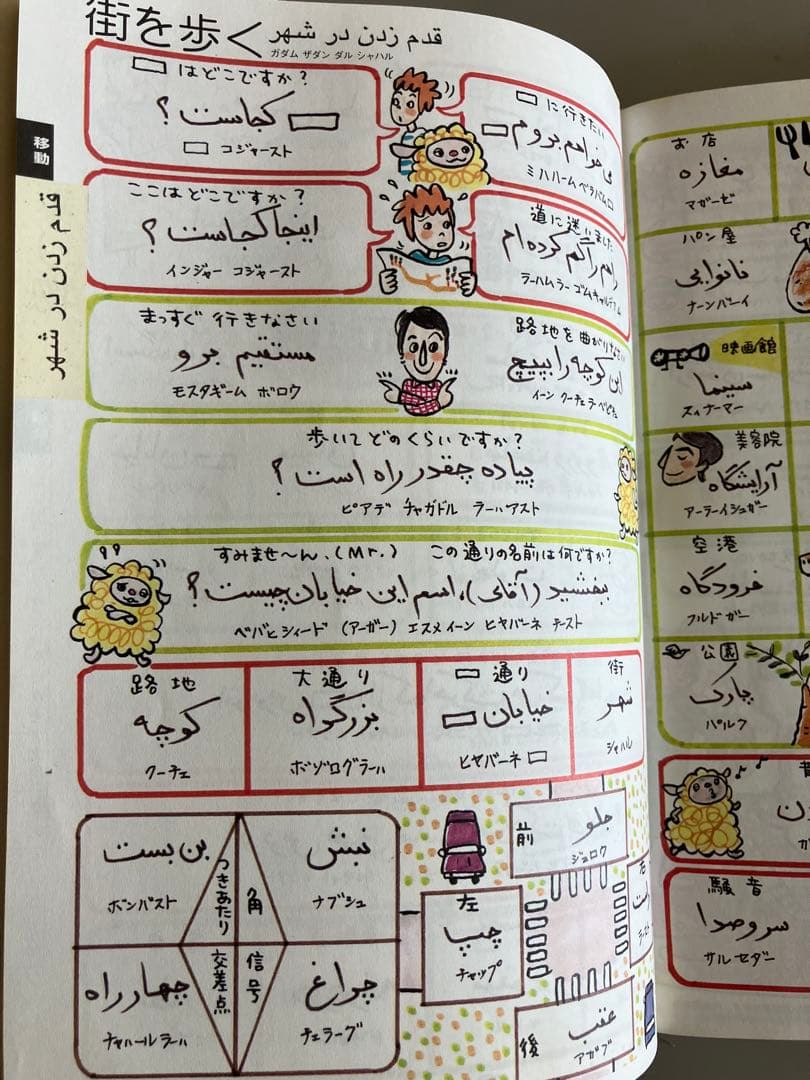 街を歩く قدم زدن در شهر
ガダム ザダン ダル シャハル
移動
قدم زدن در شهر
□ はどこですか?
□ کجاست ؟
□ コジャースト
□ に行きたい
ここはどこですか?
اینجا کجاست ؟
インジャー コジャースト
道に迷いました
راهم را گم کرده ام
まっすぐ 行きなさい
مستقیم برو
モスタギーム ボロウ
路地を曲がりなさい
این کوچه را بپیچ
歩いてどのくらいですか?
پیاده چقدر راه است ؟
ピアデ チャガドル ラーハアスト
すみませ〜ん、(Mr.) この通りの名前は何ですか?
ببخشید (آقای)، اسم این خیابان چیست ؟
ベバヒシィード (アーガー) エスメ イーン ヒヤバーネ チースト
路地
کوچه
クーチェ
大通り
بزرگراه
ボゾログラーハ
□ 通り
خیابان □
ヒヤバーネ □
街
شهر
シャハル
بن بست
ボンバスト
つきあたり
角
نبش
ナブシュ
چهار راه
チャハールラーハ
交差点
信号
چراغ
チェラーグ
前
جلو
ジェロウ
左
چپ
チャップ
後
عقب
アガブ
お店
مغازه
マガーゼ
パン屋
نانوایی
ナーンバーイ
映画館
سینما
スィナーマー
美容院
آرایشگاه
アーラーイシュガー
空港
فرودگاه
フルドガー
公園
پارک
パルク
騒音
سر و صدا
サルセダー